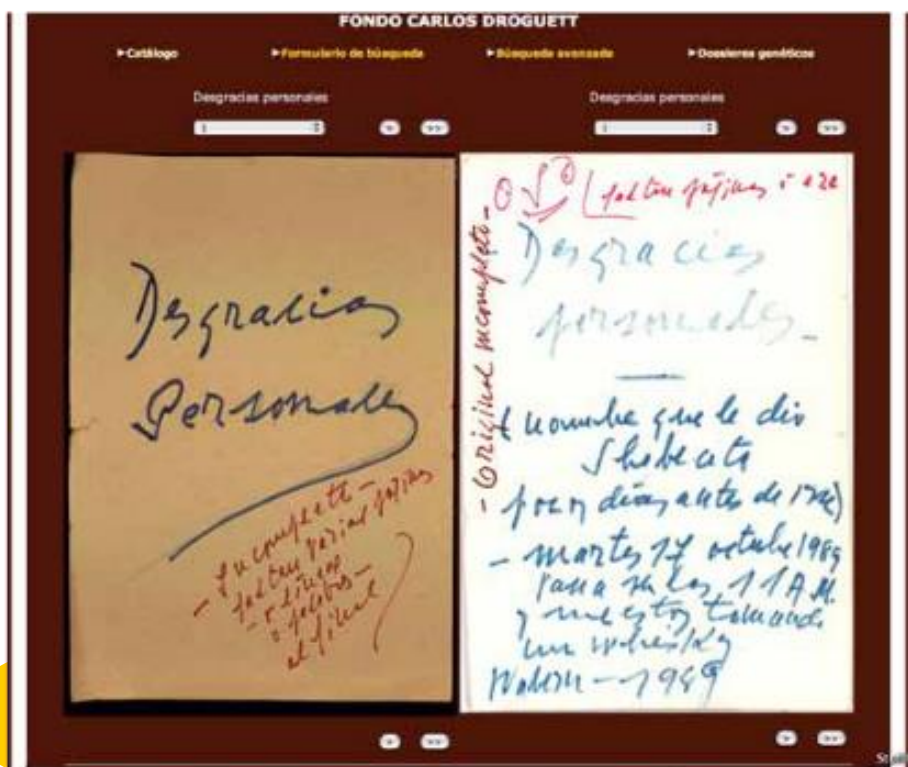 FONDO CARLOS DROGUETT
►Catálogo ►Formulario de búsqueda ►Búsqueda avanzada ►Dossieres genéticos
Desgracias personales Desgracias personales
1 1
> >> > >>
Desgracias
Personales
- Incompleto -
faltan varias páginas
- o líneas
o palabras -
al final
faltan páginas
- Original incompleto -
Desgracias
personales -
nombre que le dio
días antes de irse)
- martes 17 octubre 1989
las 11 A.M.
y me estoy tomando
un whisky
1989
> >> > >>